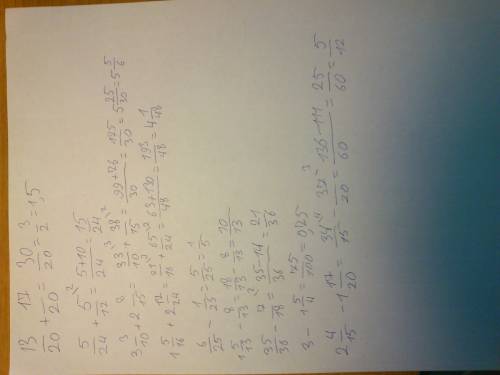 13/20 + 17/20 = 30/20 = 3/2 = 1,5
5/24 + 5/12 ² = 5+10/24 = 15/24
3 3/10 + 2 8/15 = 33/10 ³ + 38/15 ² = 99+76/30 = 175/30 = 5 25/30 = 5 5/6
1 5/16 + 2 17/24 = 21/16 ³ + 65/24 ² = 63+130/48 = 193/48 = 4 1/48
6/25 - 1/25 = 5/25 = 1/5
1 5/13 - 8/13 = 18/13 - 8/13 = 10/13
35/36 - 7/18 ² = 35-14/36 = 21/36
3 - 1 5/4 = 75/100 = 0,75
2 4/15 - 1 17/20 = 34/15 ⁴ - 37/20 ³ = 136-111/60 = 25/60 = 5/12